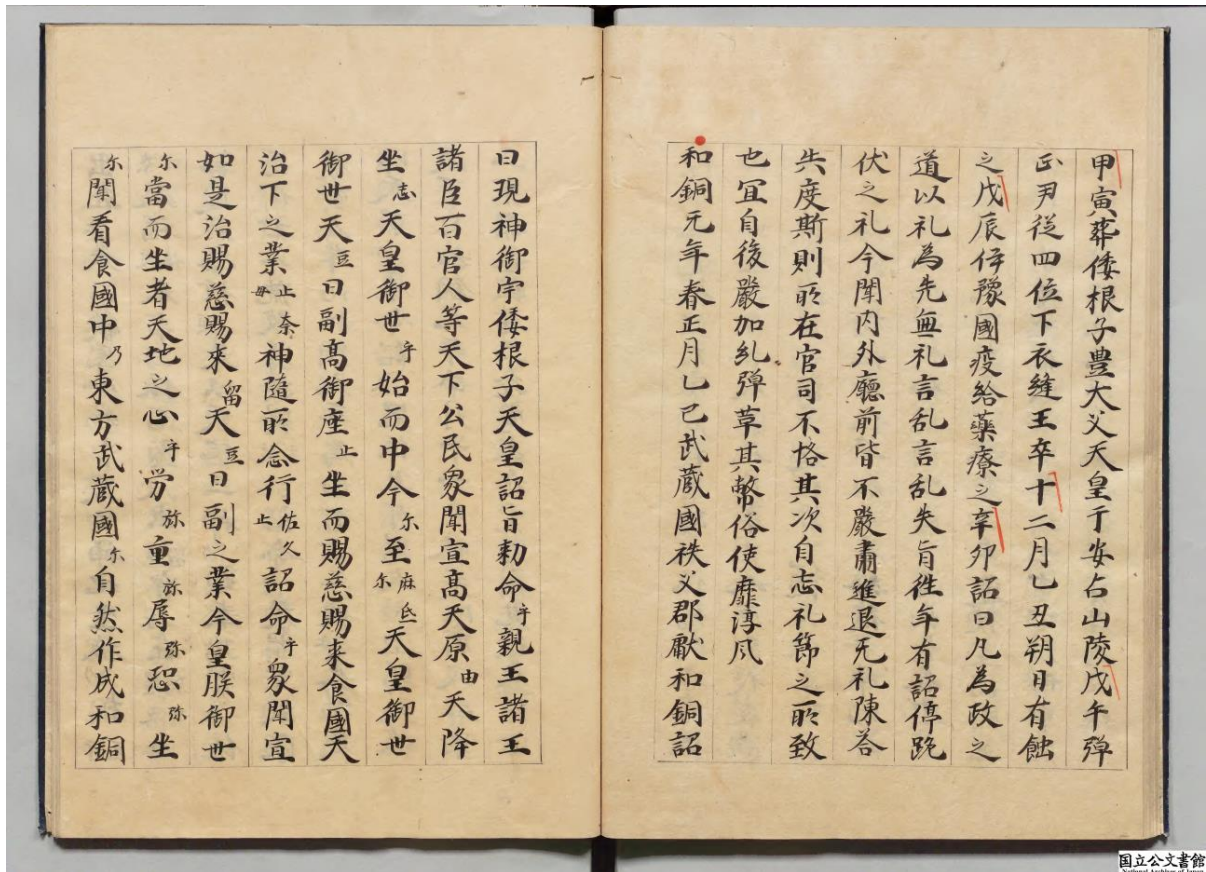 甲寅葬倭根子豊大父天皇于安占山陵戊午弾
正尹従四位下衣縫王卒十二月乙丑朔日有蝕
之戊辰伊豫國疫給薬療之辛卯詔曰凡為政之
道以礼為先無礼言乱言乱失旨往年有詔停跪
伏之礼今聞内外廳前皆不嚴肅進退无礼陳答
失度斯則所在官司不恪其次自忘礼節之所致
也冝自後嚴加糺弾革其弊俗使靡淳風
和銅元年春正月乙巳武蔵國秩父郡獻和銅詔
曰現神御宇倭根子天皇詔旨勅命乎親王諸王
諸臣百官人等天下公民衆聞宣高天原由天降
坐志天皇御世乎始而中今尓至麻氐尓天皇御世
御世天豆日副高御座止坐而賜慈賜来食國天
治下之業止奈毋神随所念行佐久止詔命乎衆聞宣
如是治賜慈賜来留天豆日副之業今皇朕御世
尓當而坐者天地之心乎労弥重弥辱弥恐弥坐
尓聞看食國中乃東方武蔵國尓自然作成和銅
国立公文書館
National Archives of Japan